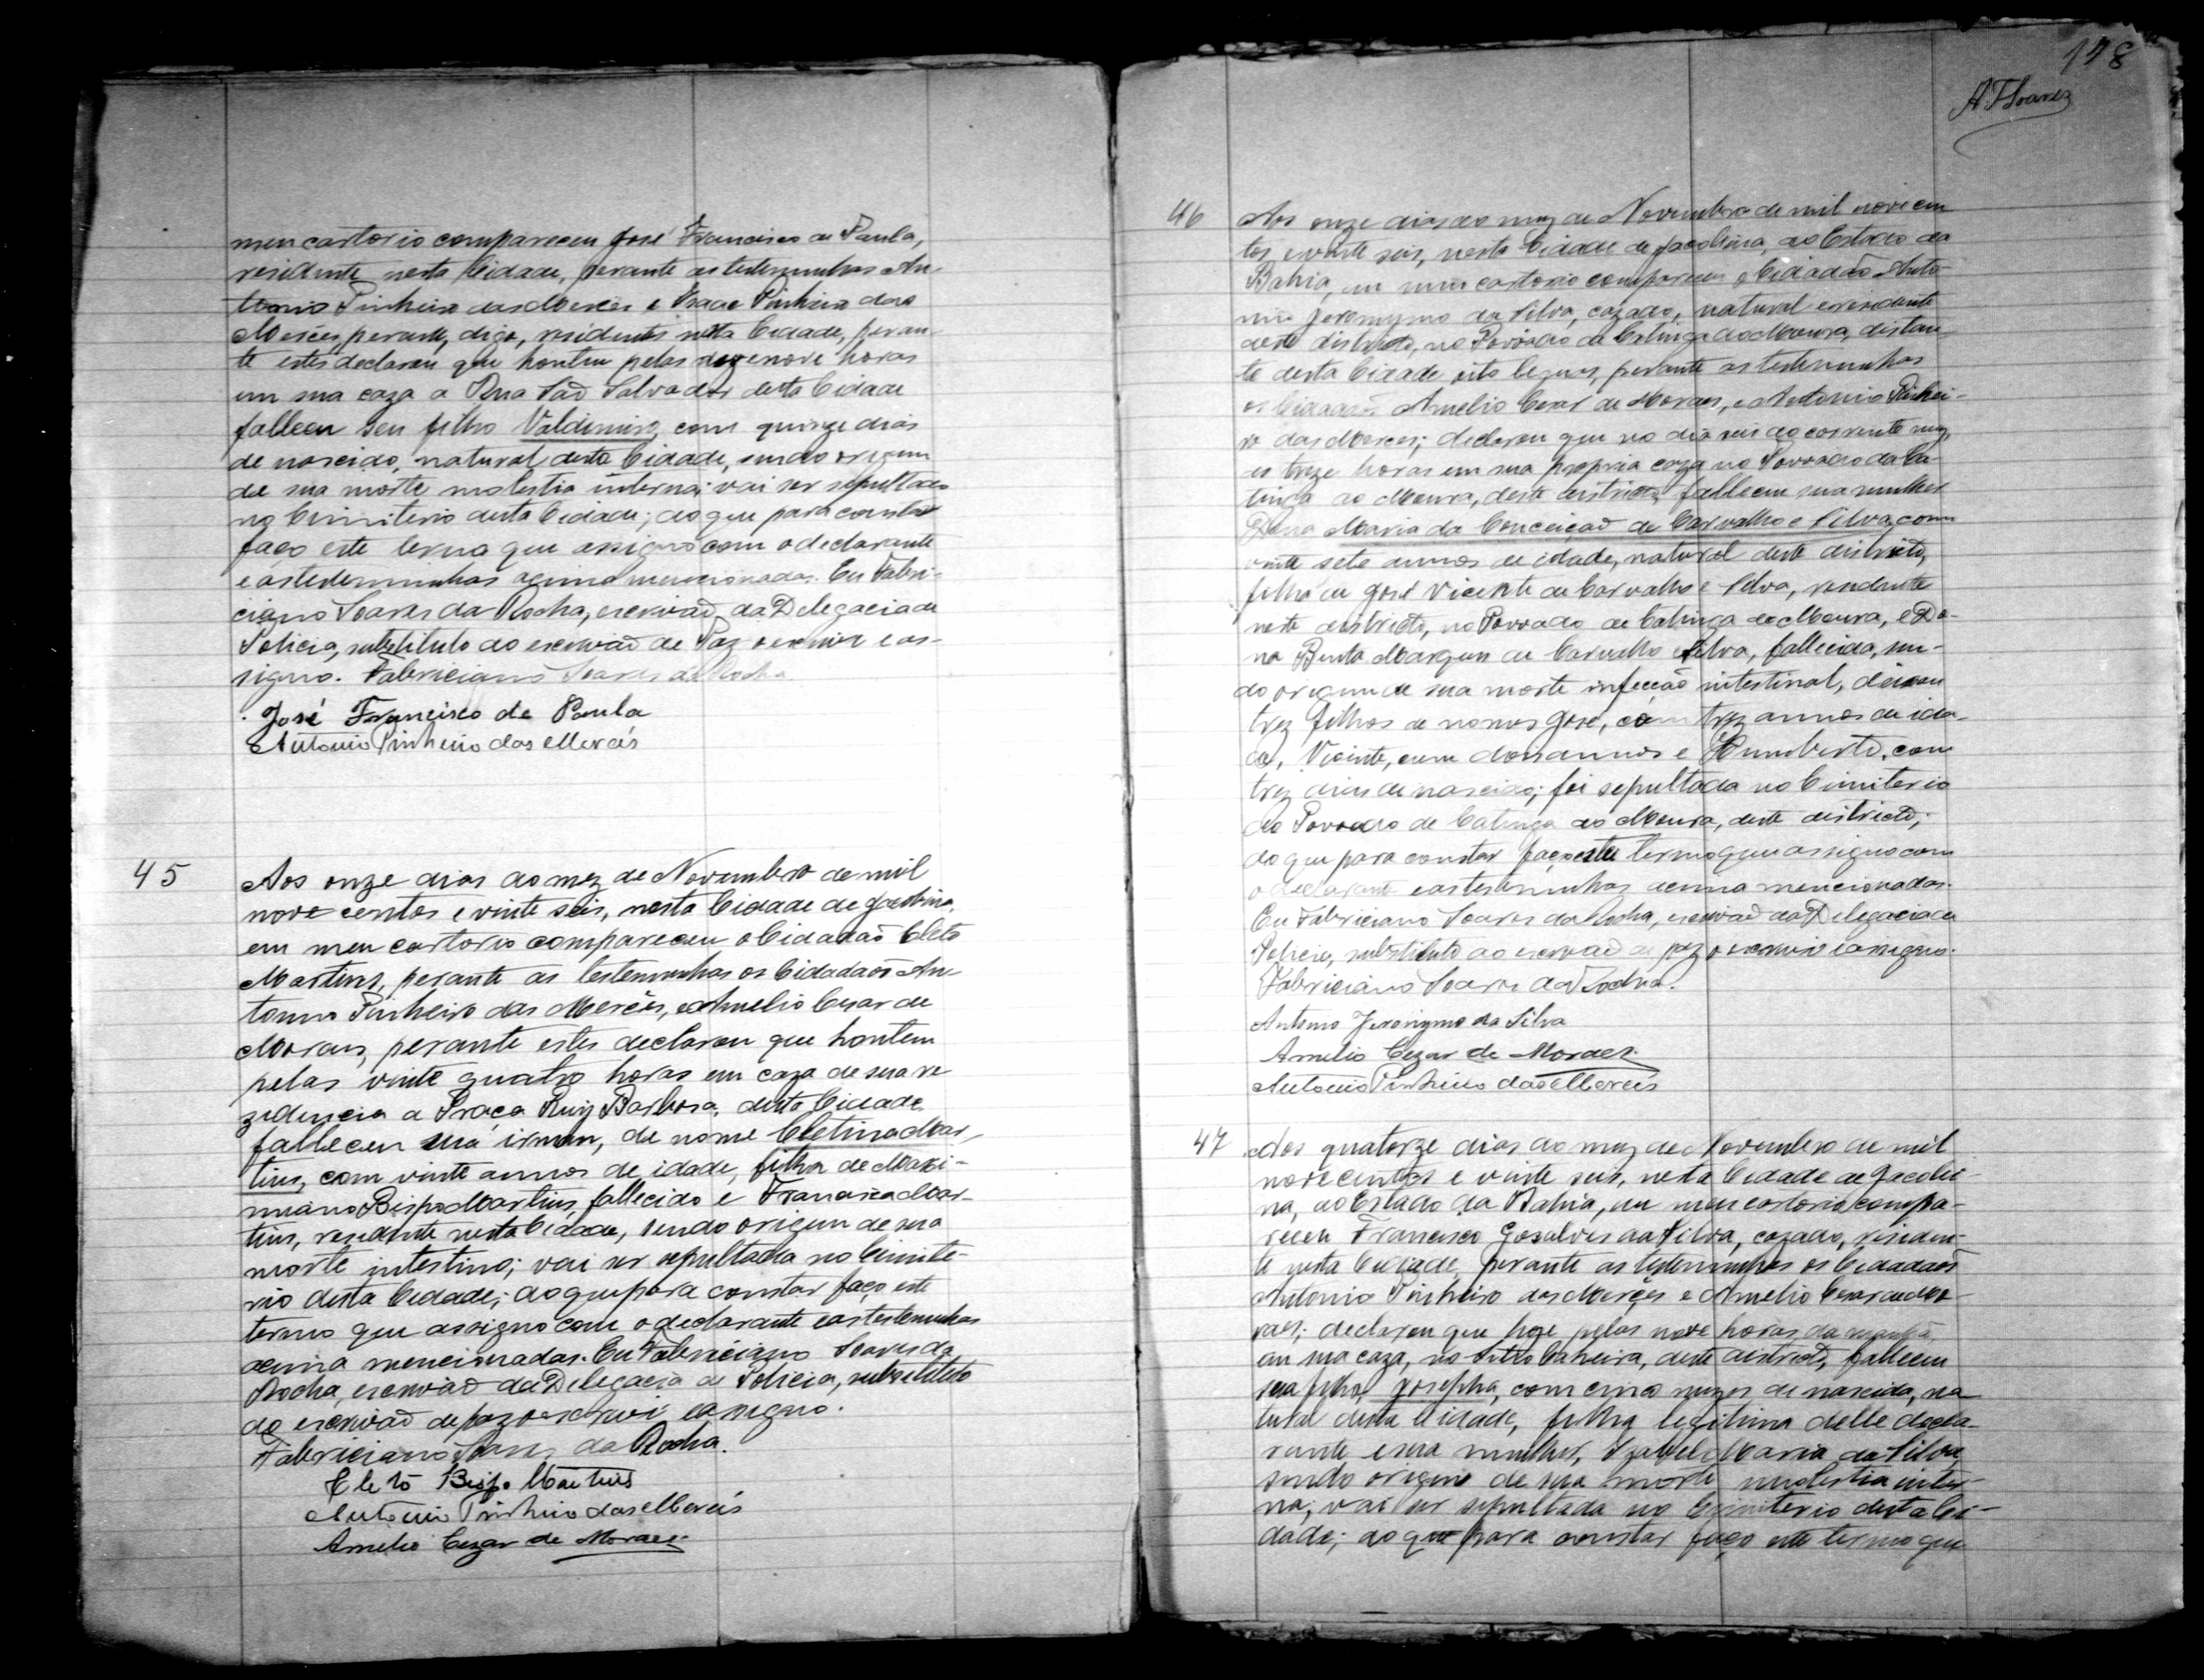 meu cartorio compareceu José Francisco de Paula,
residente nesta Cidade, perante as testemunhas An-
tonio Pinheiro das Mercês e Isaac Pinheiro das
Mercês perante, digo, residentes nesta Cidade, peran-
te estes declarou que hontem pelas dezenove horas
em sua caza a Rua São Salvador desta Cidade
falleceu seu filho Valdimiro, com quinze dias
de nascido, natural desta Cidade, sendo origem
de sua morte molestia interna; vai ser sepultado
no Cimiterio desta Cidade; do que para constar
faço este termo que assigno com o declarante
e as testemunhas acima mencionadas. Eu Fabri-
ciano Soares da Rocha, escrivaõ da Delegacia de
Policia, substituto do escrivaõ de Paz o escrevi e as-
signo. Fabriciano Soares da Rocha
José Francisco de Paula
Antonio Pinheiro das Mercês
45
Aos onze dias do mez de Novembro de mil
nove centos e vinte seis, nesta Cidade de Jacobina,
em meu cartorio compareceu o Cidadaõ Cleto
Martins, perante as testemunhas os Cidadaõs An
tonio Pinheiro das Mercês, e Amelio Cesar de
Moraes, perante estes declarou que hontem
pelas vinte quatro horas em caza de sua re
zidencia a Praça Ruiz Barbosa, desta Cidade,
falleceu sua irman, de nome Cletina Mar
tins, com vinte annos de idade, filha de Maxi-
miano Bispo Martins, fallecido e Francisca Mar-
tins, residente nesta Cidade, sendo origem de sua
morte intestino; vai ser sepultada no Cimite-
rio desta Cidade; do que para constar faço este
termo que assigno com o declarante e as testemunhas
acima mencionadas. Eu Fabriciano Soares da
Rocha, escrivaõ da Delegacia de Policia, substituto
do escrivaõ de paz o escrevi e assigno.
Fabriciano Soares da Rocha.
Cleto Bispo Martins
Antonio Pinheiro das Mercês
Amelio Cezar de Moraes.
178
A. F. Soares
46
Aos onze dias do mez de Novembro de mil novecen
tos e vinte seis, nesta Cidade de Jacobina, do Estado da
Bahia, em meu cartorio compareceu o Cidadaõ Anto-
nio Jeronymo da Silva, cazado, natural e residente
deste districto, no Povoado de Catinga do Moura, distan
te desta Cidade oito leguas, perante as testemunhas
os Cidadaõs Amelio Cesar de Moraes, e Antonio Pinhei-
ro das Merces; declarou que no dia seis do corrente mez,
as treze horas em sua propria caza no Povoado da Ca-
tinga do Moura, deste districto, falleceu sua mulher
Dona Maria da Conceiçaõ de Carvalho e Silva, com
vinte sete annos de idade, natural deste districto,
filha de José Vicente de Carvalho e Silva, residente
neste districto, no Povoado de Catinga do Moura, e Do-
na Benta Marques de Carvalho e Silva, fallecida, sen-
do origem de sua morte infecção intestinal, deixou
trez filhos de nomes José, com trez annos de ida-
de, Vicente, com dois annos e Humberto, com
trez dias de nascido; foi sepultada no Cimiterio
do Povoado de Catinga do Moura, deste districto;
do que para constar faço este termo que assigno com
o declarante e as testemunhas acima mencionadas.
Eu Fabriciano Soares da Rocha, escrivaõ da Delegacia de
Policia, substituto do escrivaõ de paz o escrevi e assigno.
Fabriciano Soares da Rocha.
Antonio Jeronymo da Silva
Amelio Cezar de Moraes.
Antonio Pinheiro das Mercês
47
Aos quatorze dias do mez de Novembro de mil
nove centos e vinte seis, nesta Cidade de Jacobi-
na, do Estado da Bahia, em meu cartorio compa-
receu Francisco Gosalves da Silva, cazado, residen-
te nesta Cidade, perante as testemunhas os Cidadaõs
Antonio Pinheiro das Mercês e Amelio Cesar de Mo
raes; declarou que hoje pelas nove horas da manhã,
em sua caza, no Sitio , deste districto, falleceu
sua filha, Josepha, com cinco mezes de nascida, na
tural desta Cidade, filha legitima delle decla-
rante e sua mulher, Izabel Maria da Silva,
sendo origem de sua morte molestia inter-
na; vai ser sepultada no Cimiterio desta Ci-
dade; do que para constar faço este termo que